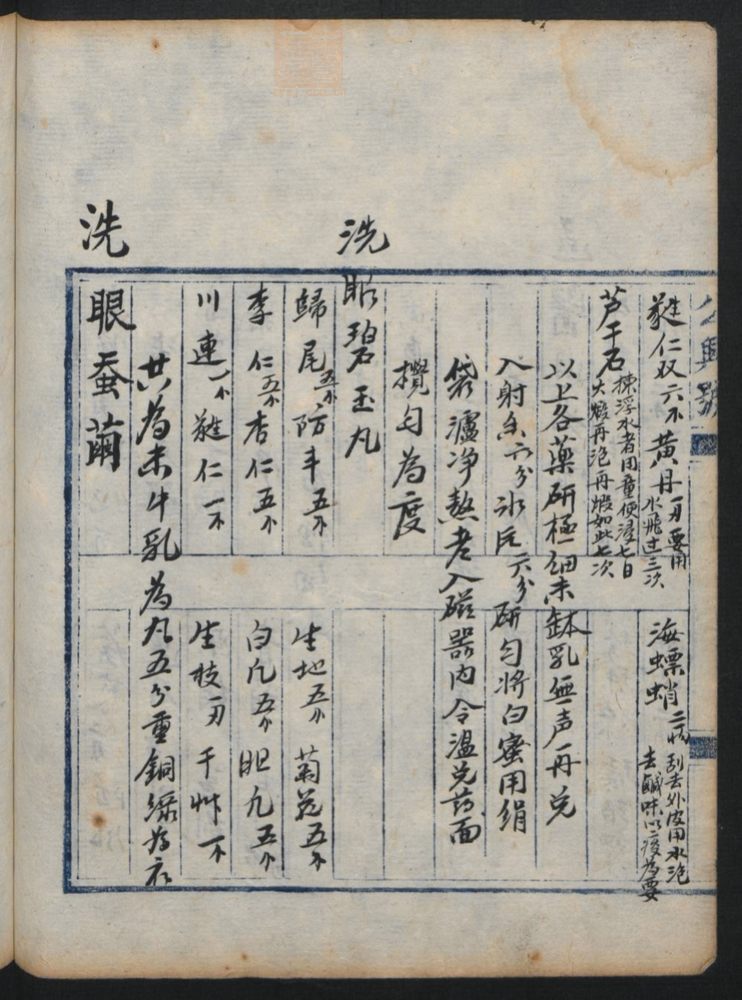 蕤仁双六不 黄丹一刃 要用水飛过三次 海螵蛸二 刮去外皮用水泡去鹹味以淡為要
芦干石 揀浮水者用童便浸七日大煅再泡再煅如此七次
以上各薬研極細末缽乳無声再兑
入射香六分氷片六分研匀将白蜜用絹
袋濾净熬老入磁器内令温兑药面
攪匀為度
洗眼碧玉丸
歸尾五 防丰五 生地五 菊花五
李仁五 杏仁五 白凡五 胆凡五
川連一 蕤仁一 生枝一刃 干艸一
共為末牛乳為丸五分重銅綠為衣
洗眼蚕茧